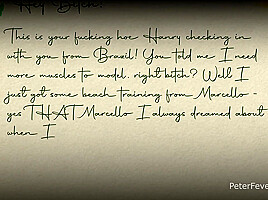 Hey Bitch!
This is your fucking hoe Hanry checking in
with you from Brazil! You told me I need
more muscles to model, right bitch? Well I
just got some beach training from Marcello -
yes THAT Marcello I always dreamed about
when I
PeterFeve